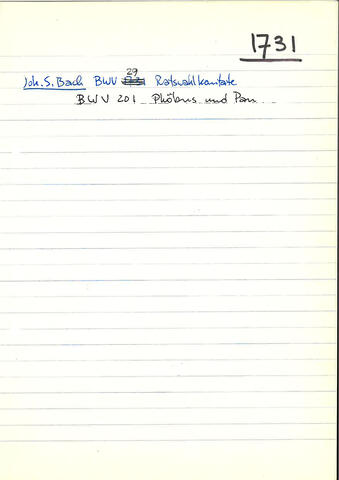 1731
Joh. S. Bach BWV 29 Ratswahlkantate
BWV 201 Phöbus und Pan